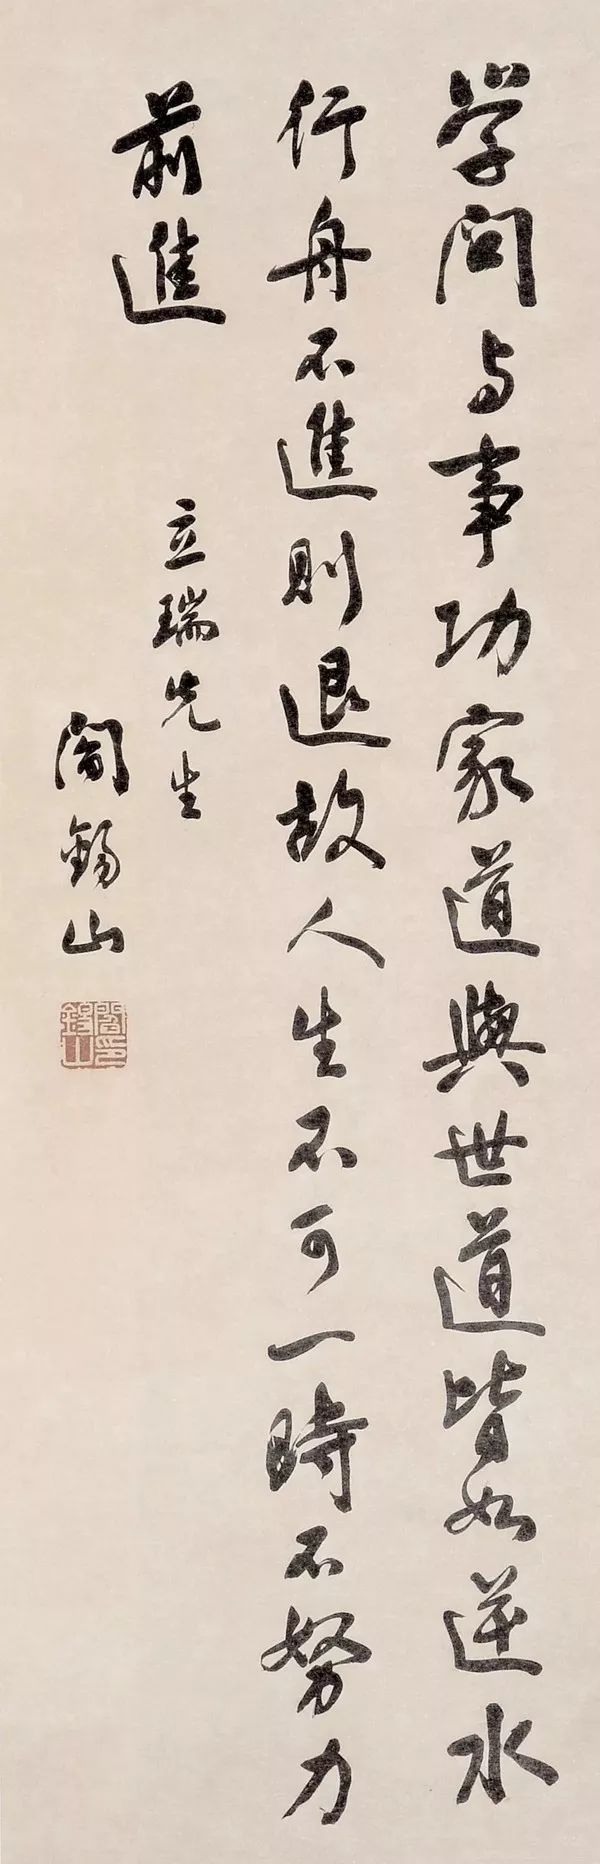 学问与事功家道與世道皆如逆水
行舟不進則退故人生不可一時不努力
前進
立瑞先生
閻錫山
閻錫山印